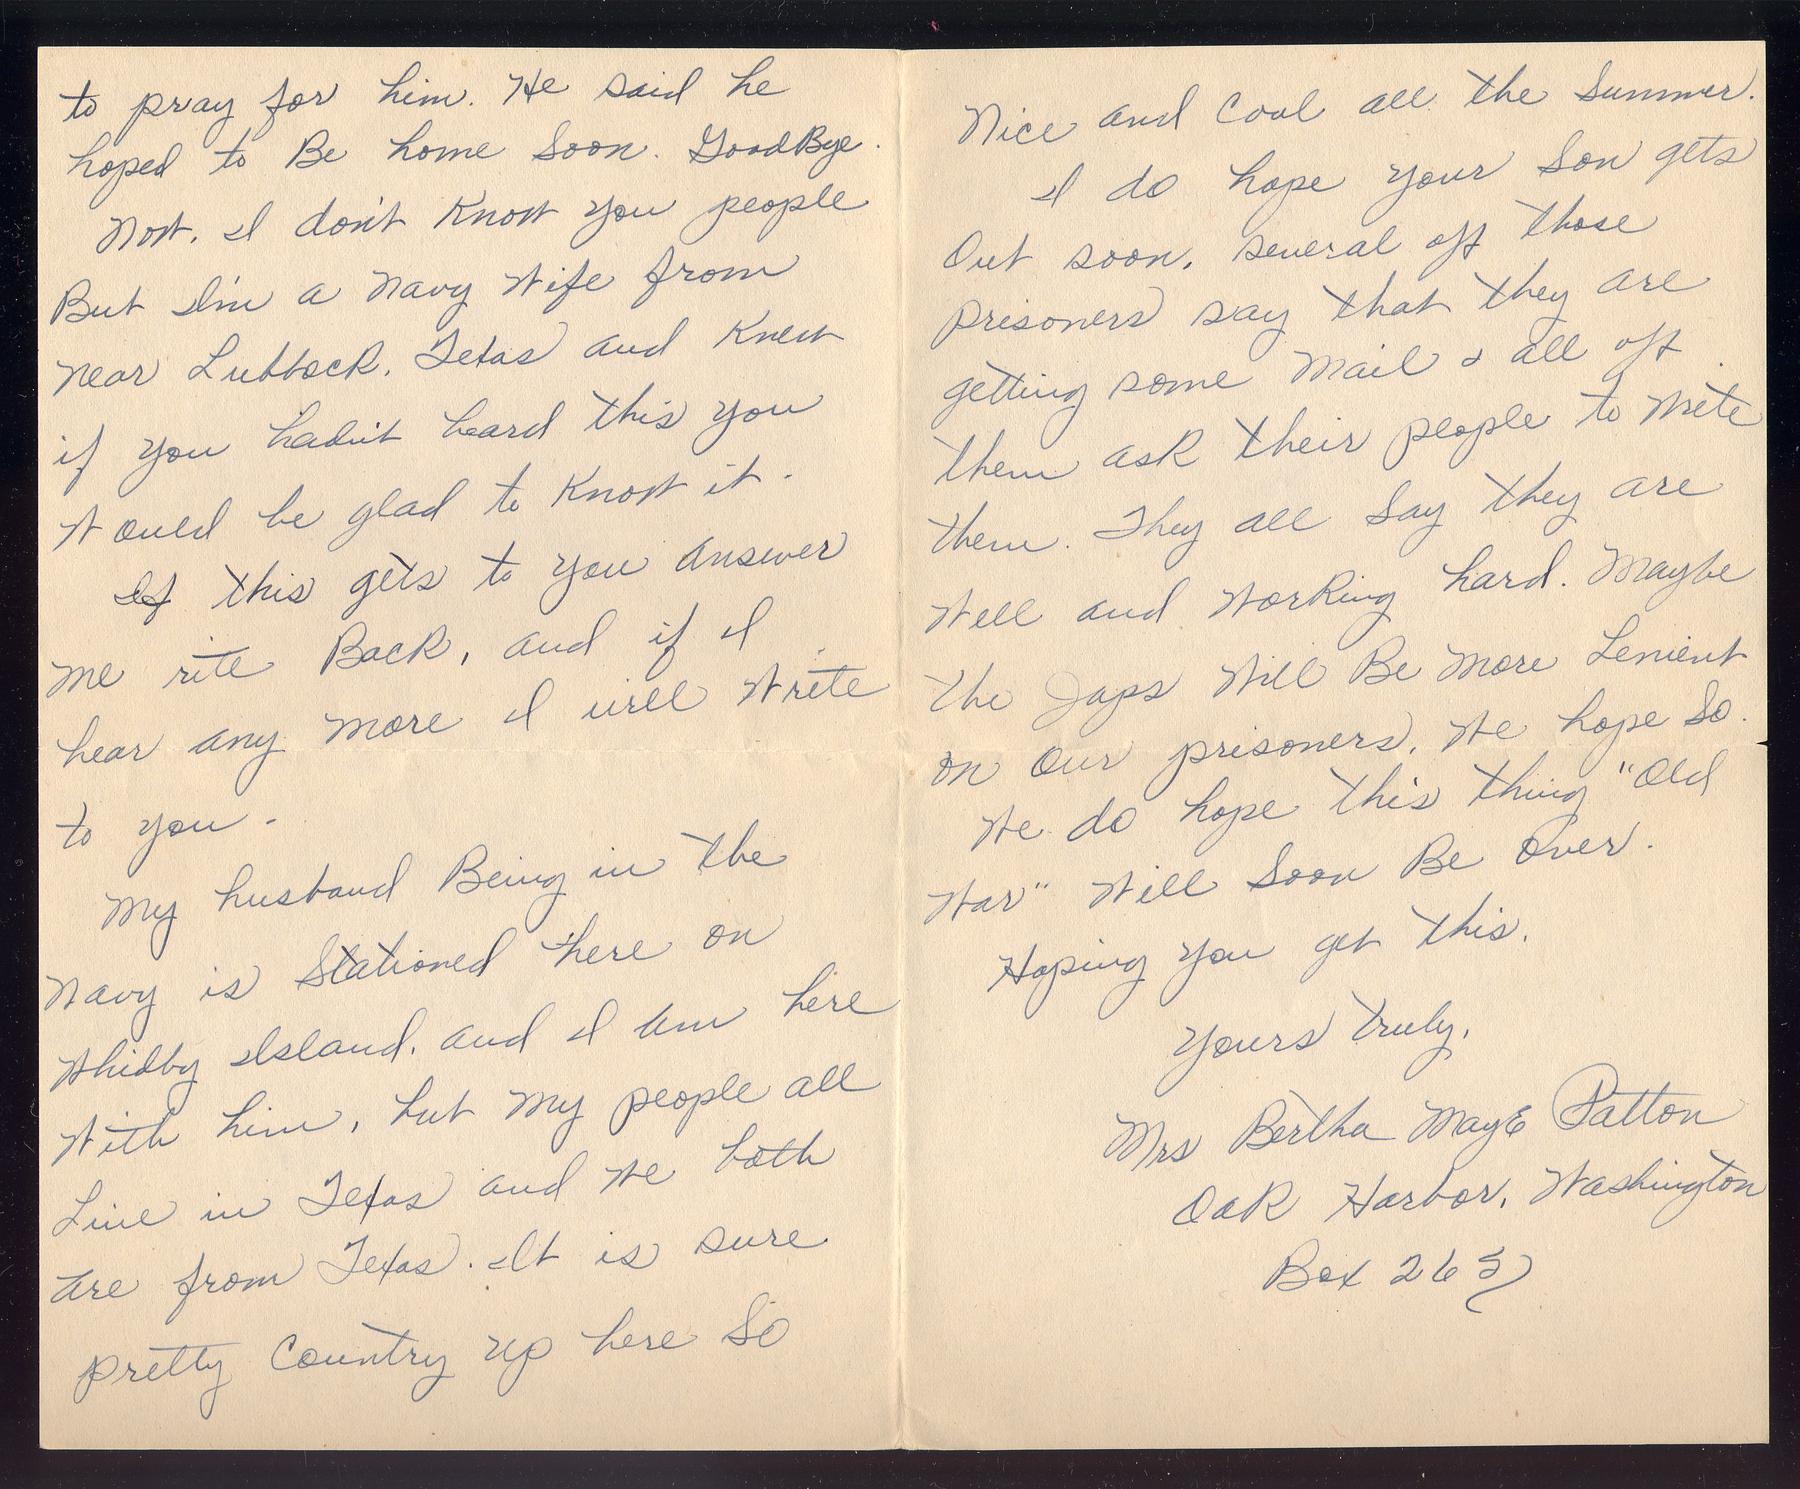 to pray for him. He said he
hoped to Be home Soon. GoodBye.
Now, I don't Know you people
But I'm a Navy Wife from
Near Lubbock, Texas and Knew
if you hadn't heard this you
Would be glad to Know it.
If this gets to you answer
me rite Back, and if I
hear any more I will Write
to you.
My husband Being in the
Navy is Stationed here on
Whidby Island, and I am here
With him, but My people all
Live in Texas and We both
are from Texas. It is sure
pretty Country up here So
Nice and Cool all the Summer.
I do hope your Son gets
Out soon, several off those
prisoners say that they are
getting some Mail & all off
them ask their people to Write
them. They all Say they are
Well and Working hard. Maybe
the Japs Will Be More Lenient
on Our prisoners, We hope So.
We do hope this thing "Old
War" Will Soon Be Over.
Hoping you get this.
Yours truly,
Mrs Bertha MayE Patton
Oak Harbor, Washington
Box 265